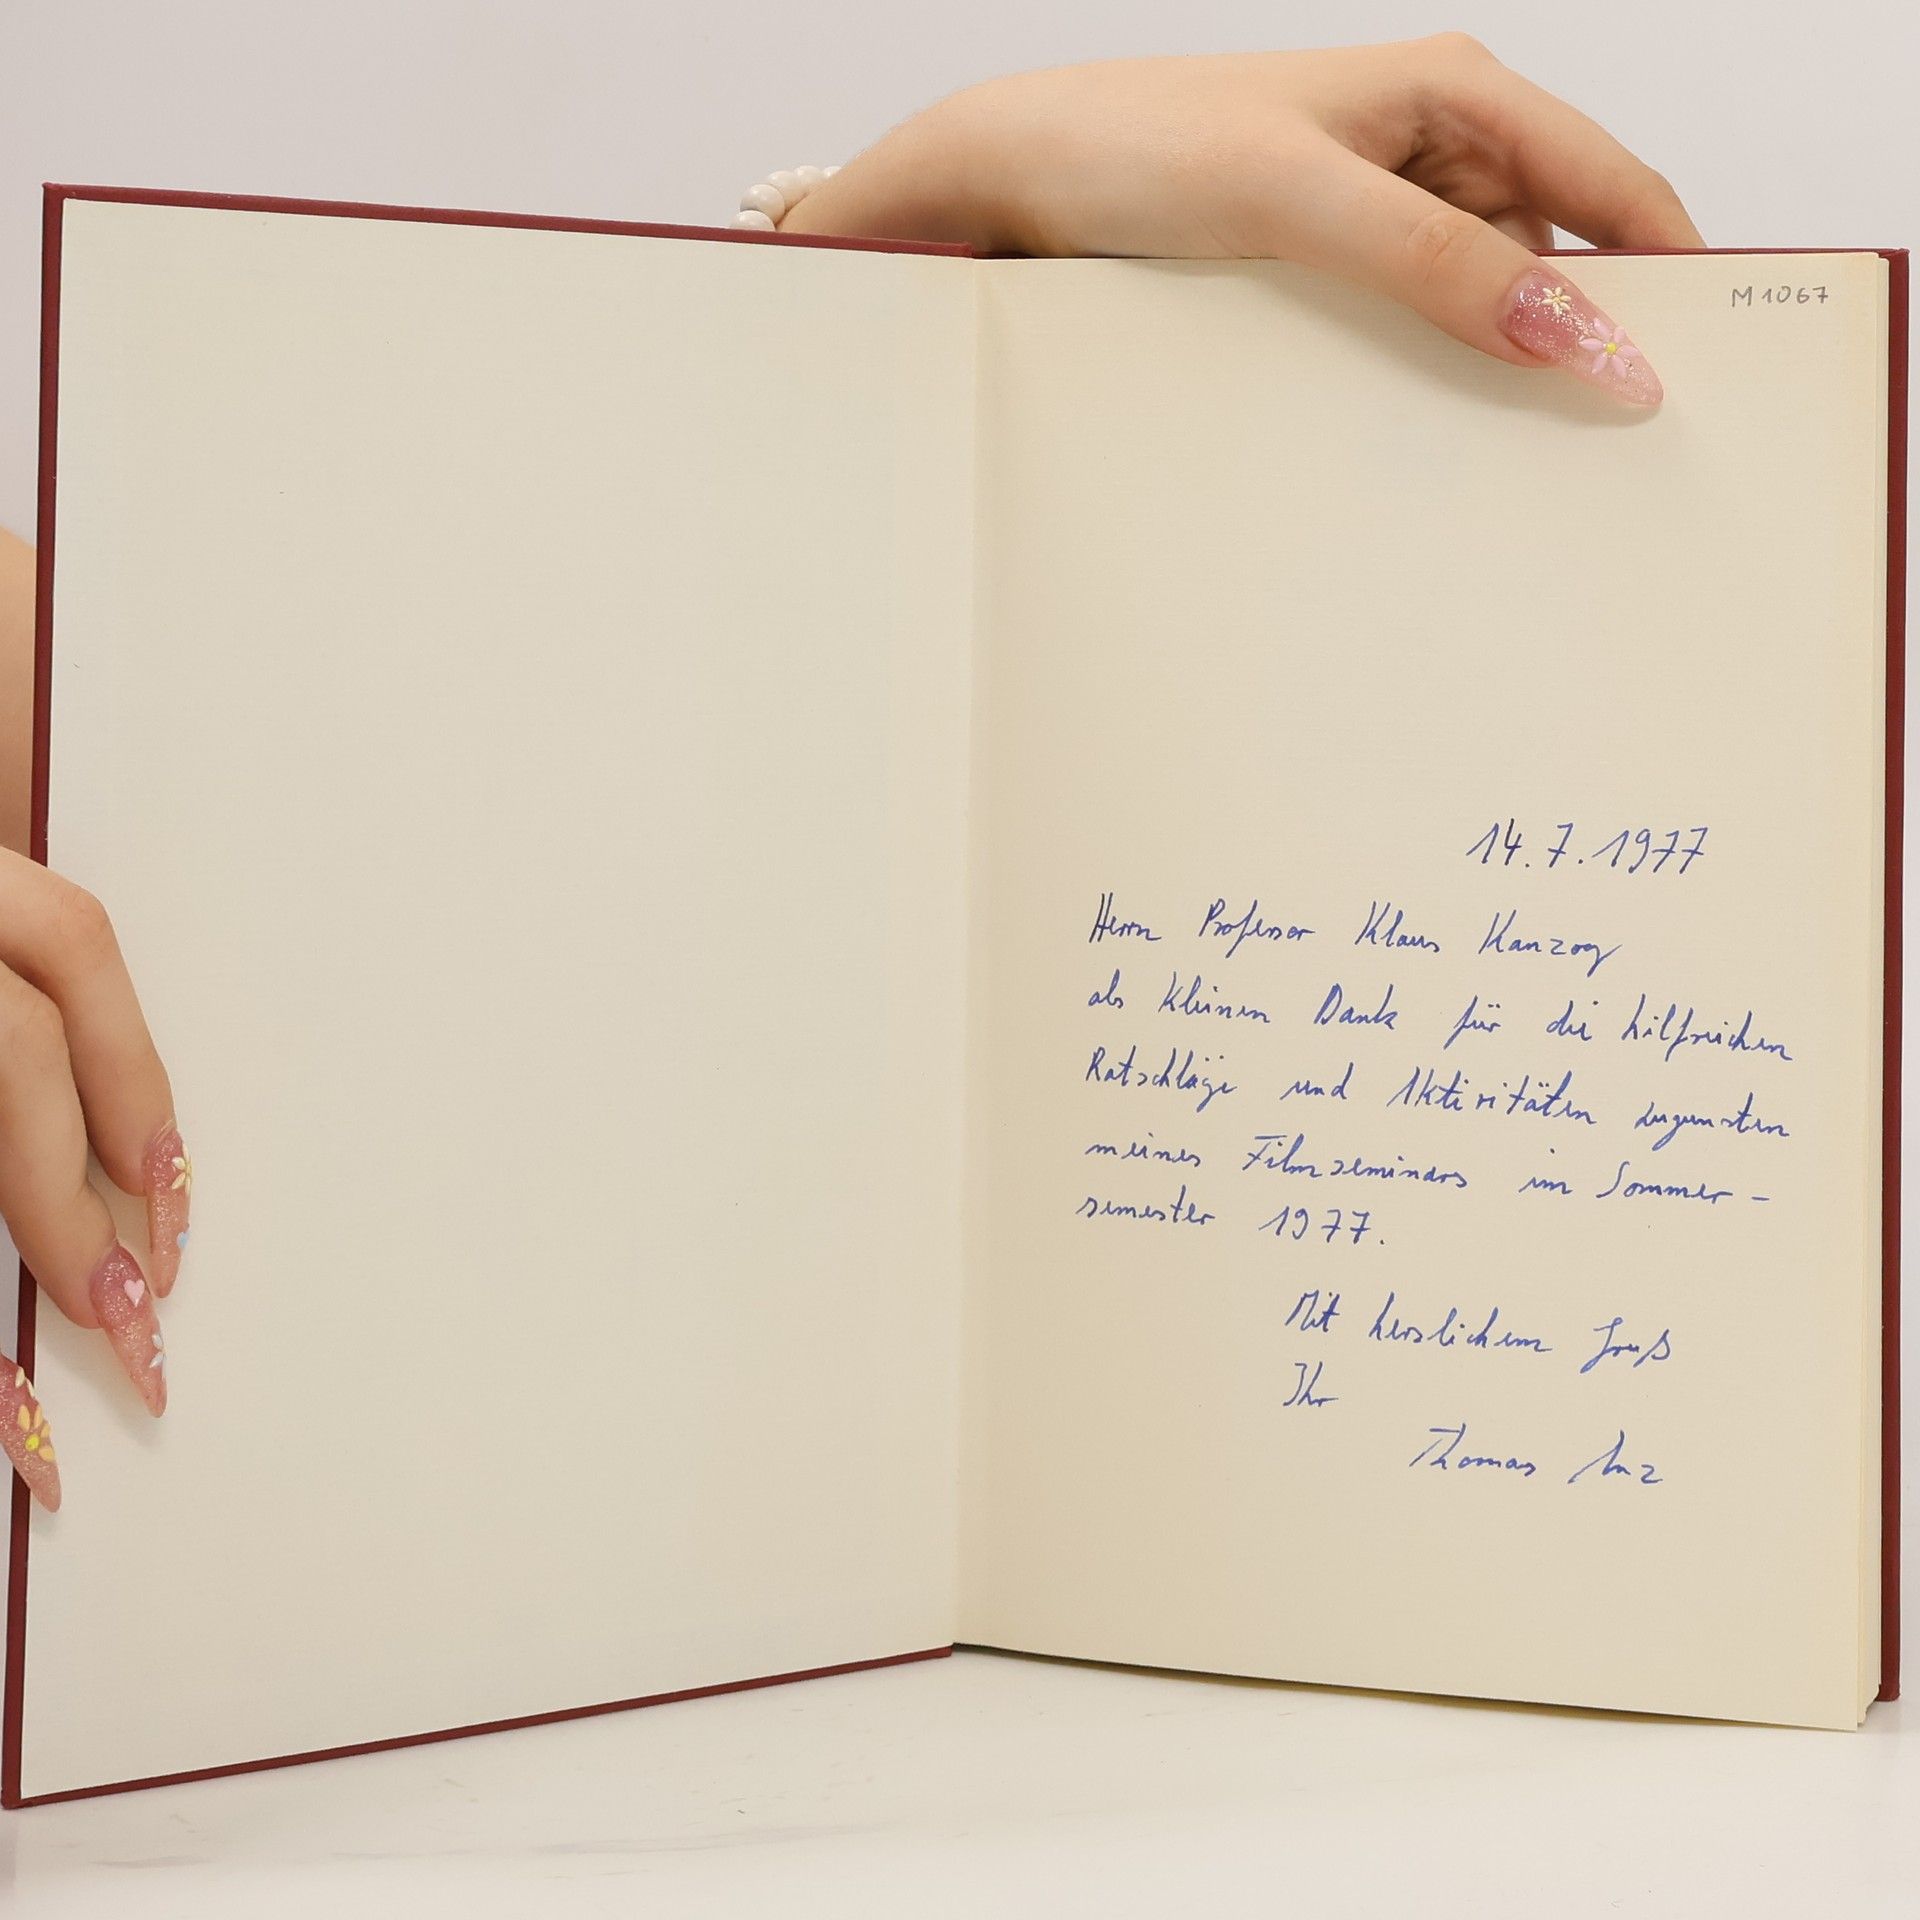 M 1067
14.7.1977
Herrn Professor Klaus Kanzog
als kleinen Dank für die hilfreichen
Ratschläge und Aktivitäten zugunsten
meines Filmseminars im Sommer-
semester 1977.
Mit herzlichem Gruß
Ihr
Thomas Anz